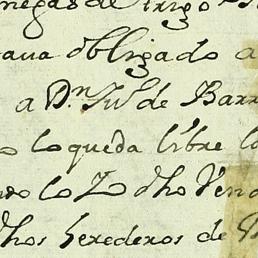 negas de trigo
obligado a
a D.n Ju.o de Barr
lo queda libre lo
lo dho Ven
dhos herederos de